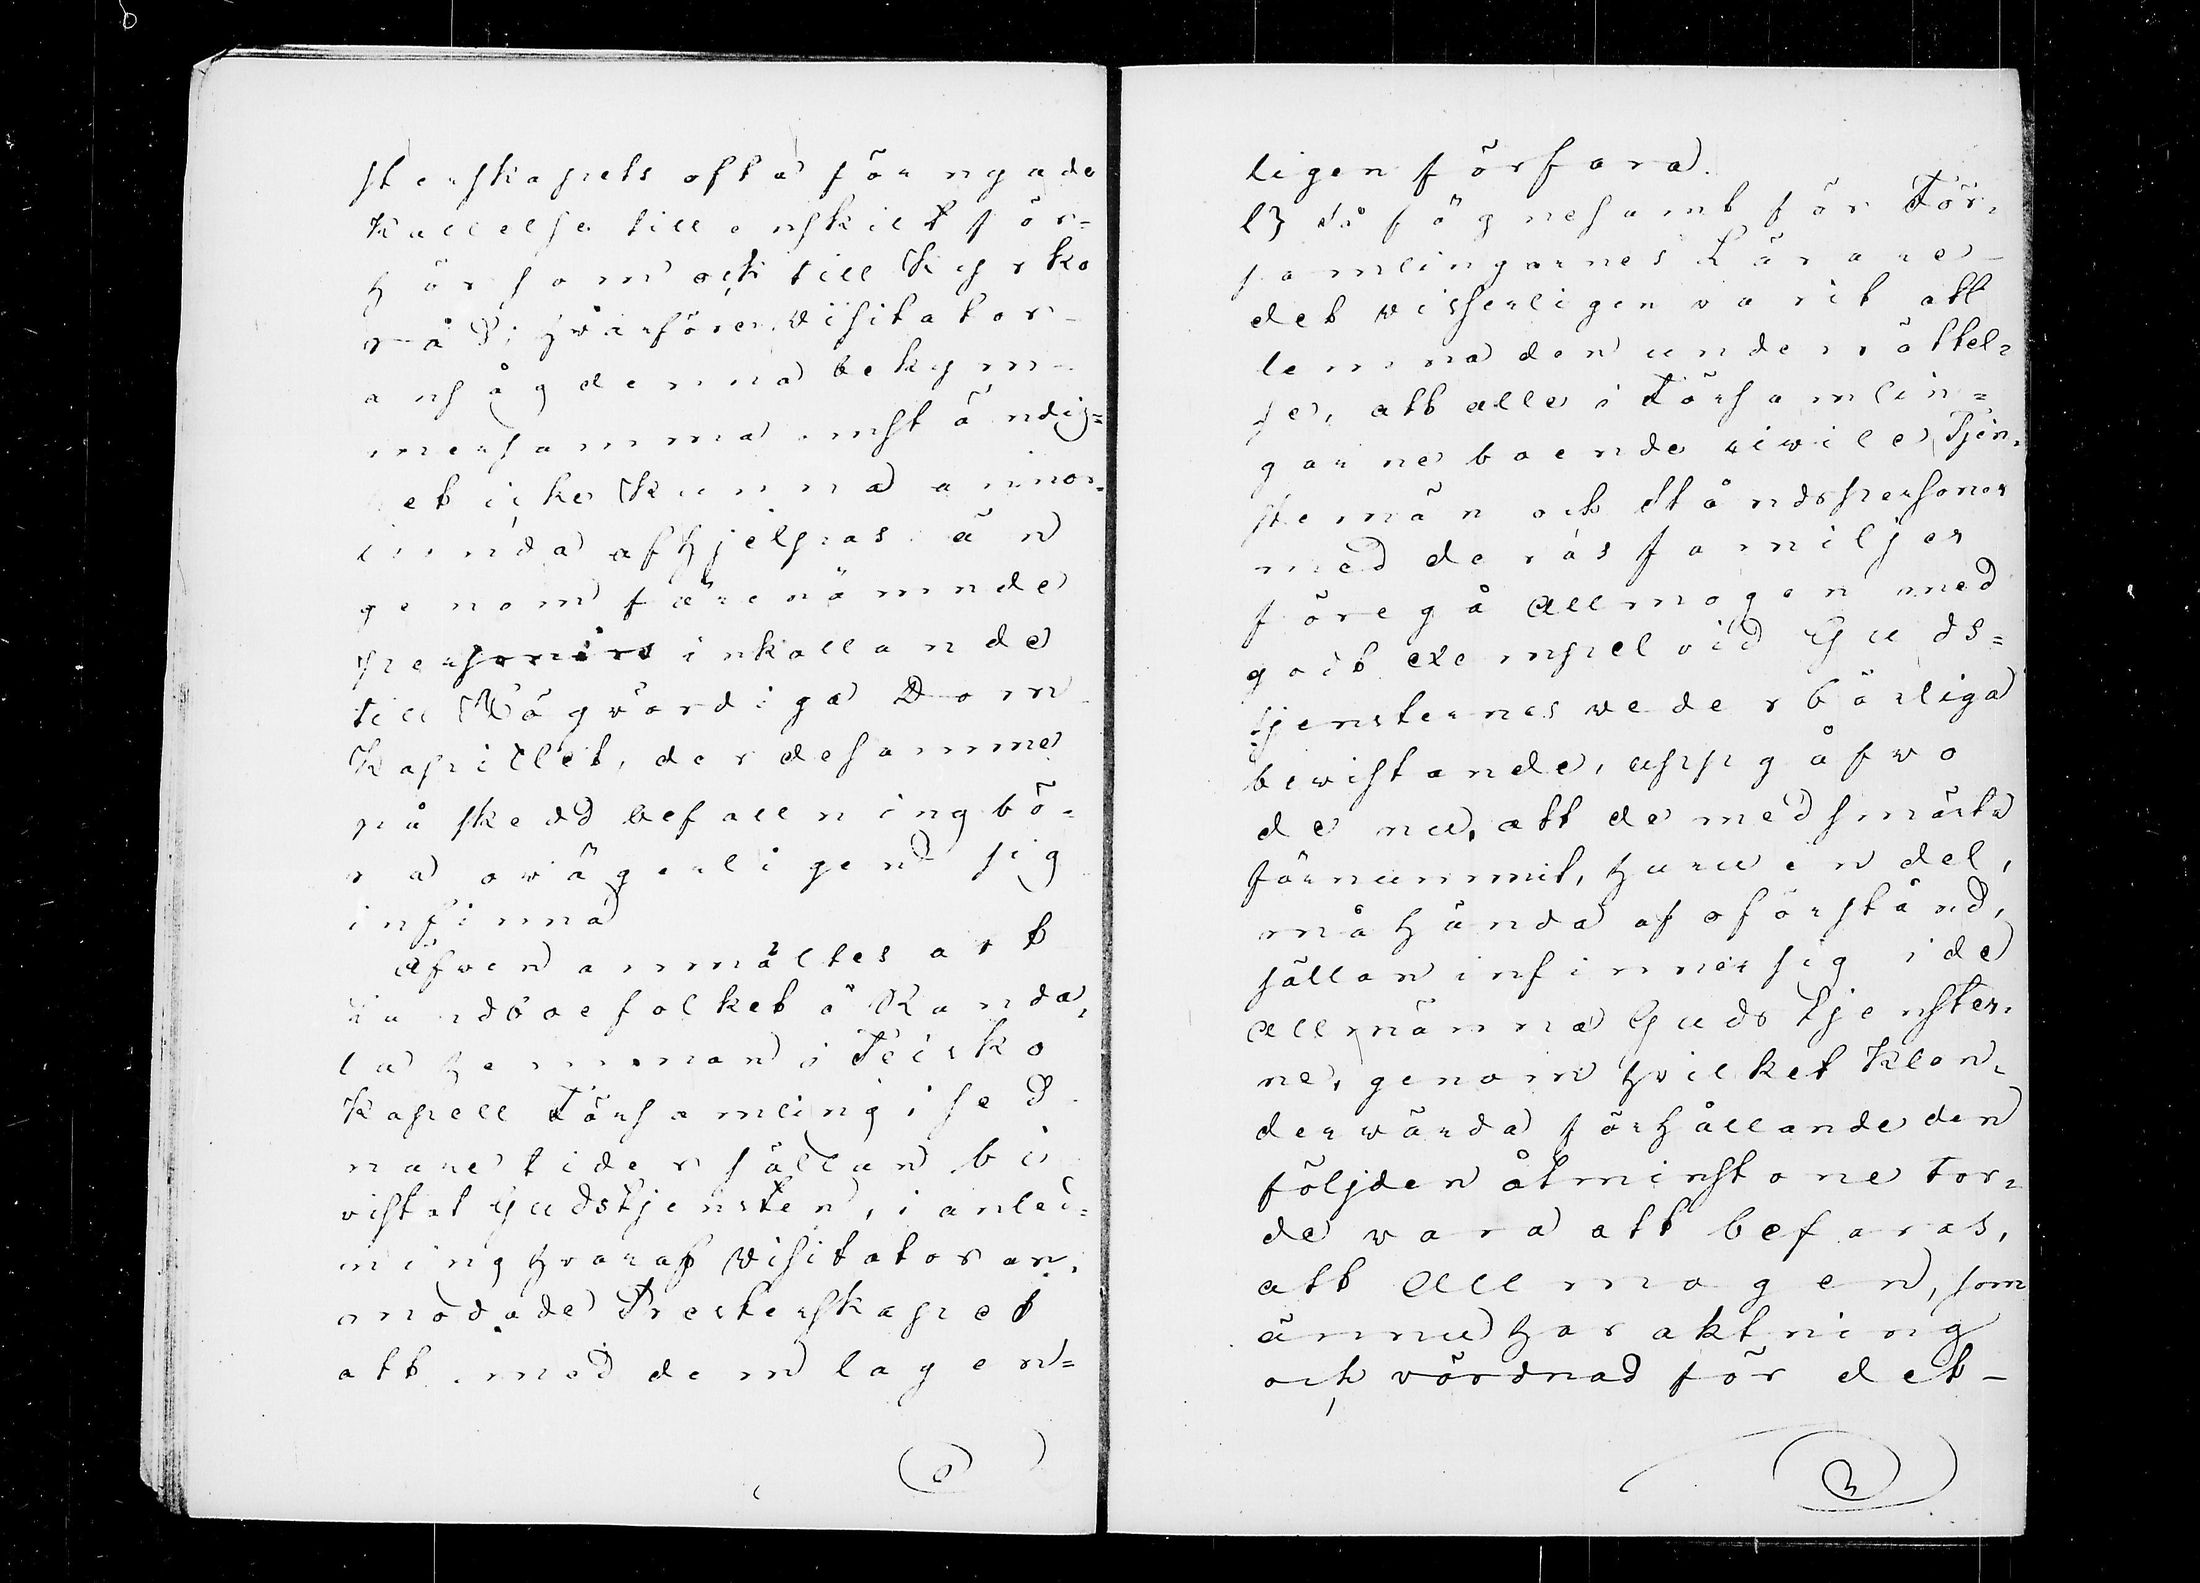 sterskapets ofta förnyade
kallelse till enskilt för=
hör som och till Kyrko
råd; hvarföre Visitator
ansåg denna bekym-
mersamma omständig=
het icke kunna annor-
lunda afhjelpas än
genom förenämnde
personers inkallande
till Högvördiga Dom
Kapitlet, der desamme
på skedd befallning bö-
ra ovägerligen sig
infinna
Äfven anmältes att
Landboefolket å Kanda,
la hemman i Teisko
Kapell Församling i sed
nare tider sällan bi
vistat Gudstjensten, i anled=
ning hvaraf Visitator an,
modade Presterskapet
att med dem lagen=
ligen förfara.
l} Så fögnesamt för För,
samlingarnes Lärare
det visserligen varit att
lemna den underrättel=
se, att alle i Församlin=
garne boende civile Tjen,
stemän och Ståndspersoner
med deras familjer
föregå Allmogen med
godt exempel vid Guds=
tjensternes vederbörliga
bevistande, uppgåfvo
de nu, att de med smärta
förnummit, huru en del,
måhända af oförstånd,
sällan infinner sig i de
allmänna Gudstjenster,
ne, genom hvilket klan,
dervärda förhållande den
följden åtminstone tor=
de vara att befaras,
att Allmogen, som
ännu har aktning
och vördnad för det-